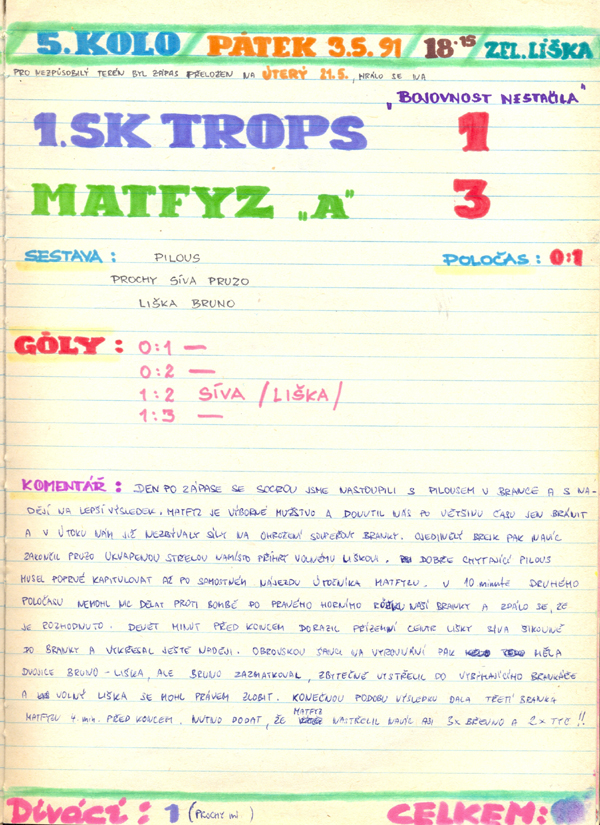 5. KOLO / PÁTEK 3.5.91 / 18.15 ZEL. LÍŠKA
PRO NEZPŮSOBILÝ TERÉN BYL ZÁPAS PŘELOŽEN NA ÚTERÝ 21.5., HRÁLO SE NA
„BOJOVNOST NESTAČILA"
1. SK TROPS 1
MATFYZ „A" 3
SESTAVA : PILOUS POLOČAS : 0:1
PROCHY SÍVA PRUZO
LIŠKA BRUNO
GÓLY :
0:1 —
0:2 —
1:2 SÍVA /LIŠKA/
1:3 —
KOMENTÁŘ : DEN PO ZÁPASE SE SOCROU JSME NASTOUPILI S PILOUSEM V BRANCE A S NA-
DĚJÍ NA LEPŠÍ VÝSLEDEK. MATFYZ JE VÝBORNÉ MUŽSTVO A DONUTIL NÁS PO VĚTŠINU ČASU JEN BRÁNIT
A V ÚTOKU NÁM JIŽ NEZBÝVALY SÍLY NA OHROŽENÍ SOUPEŘOVY BRANKY. OJEDINĚLÝ BREJK PAK NAVÍC
ZAKONČIL PRUZO UKVAPENOU STŘELOU NAMÍSTO PŘIHRÁT VOLNÉMU LIŠKOVI. DOBŘE CHYTAJÍCÍ PILOUS
MUSEL POPRVÉ KAPITULOVAT AŽ PO SAMOSTNÉM NÁJEZDU ÚTOČNÍKA MATFYZU. V 10 minutě DRUHÉHO
POLOČASU NEMOHL NIC DĚLAT PROTI BOMBĚ DO PRAVÉHO HORNÍHO RŮŽKU NAŠÍ BRANKY A ZDÁLO SE, ŽE
JE ROZHODNUTO. DEVĚT MINUT PŘED KONCEM DORAZIL PŘÍZEMNÍ CENTR LIŠKY SÍVA ŠIKOVNĚ
DO BRANKY A VZKŘÍSAL JEŠTĚ NADĚJI. OBROVSKOU ŠANCI NA VYROVNÁNÍ PAK MĚLA
DVOJICE BRUNO - LIŠKA, ALE BRUNO ZAZMATKOVAL, ZBYTEČNĚ VYSTŘELIL DO VYBÍHAJÍCÍHO BRANKÁŘE
A VOLNÝ LIŠKA SE MOHL PRÁVEM ZLOBIT. KONEČNOU PODOBU VÝSLEDKU DALA TŘETÍ BRANKA
MATFYZU 4. min. PŘED KONCEM. NUTNO DODAT, ŽE MATFYZ NASTŘELIL NAVÍC ASI 3x BŘEVNO A 2x TYČ !!
Diváci : 1 (PROCHY ml.) CELKEM :